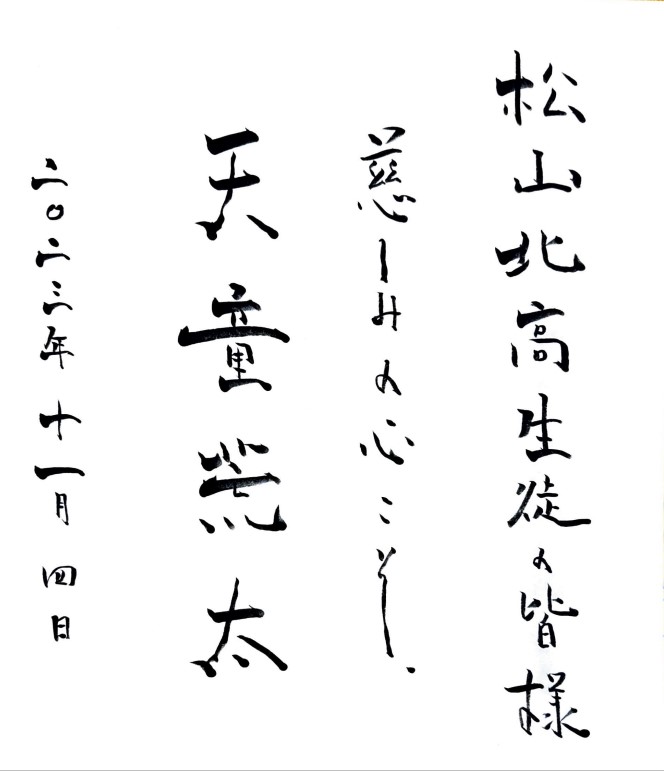 松山北高生徒の皆様
慈しみの心こそ.
天童荒太
二〇二三年 十一月 四日